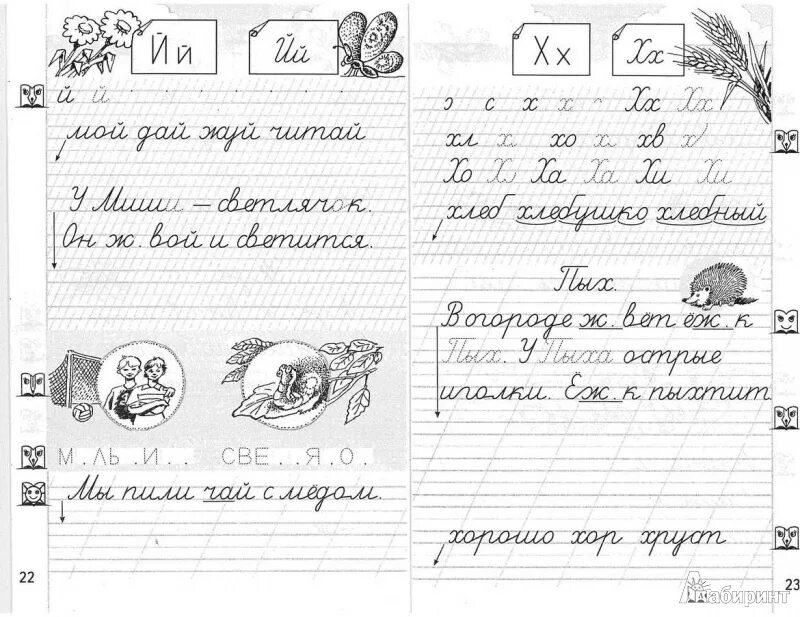 Йй Йй
й й
мой дай жуй читай
У Миши – светлячок.
Он ж.вой и светится.
М.ЛЬ.И.. СВЕ..Я.О.
Мы пили чай с мёдом.
22
Хх Хх
э с х х Хх Хх
хл х хо х хв х
Хо Х Ха Ха Хи Хи
хлеб хлебушко хлебный
Пых.
В огороде ж.вёт ёж.к
Пых. У Пыха острые
иголки. Ёж.к пыхтит
хорошо хор хруст
23
Лабиринт